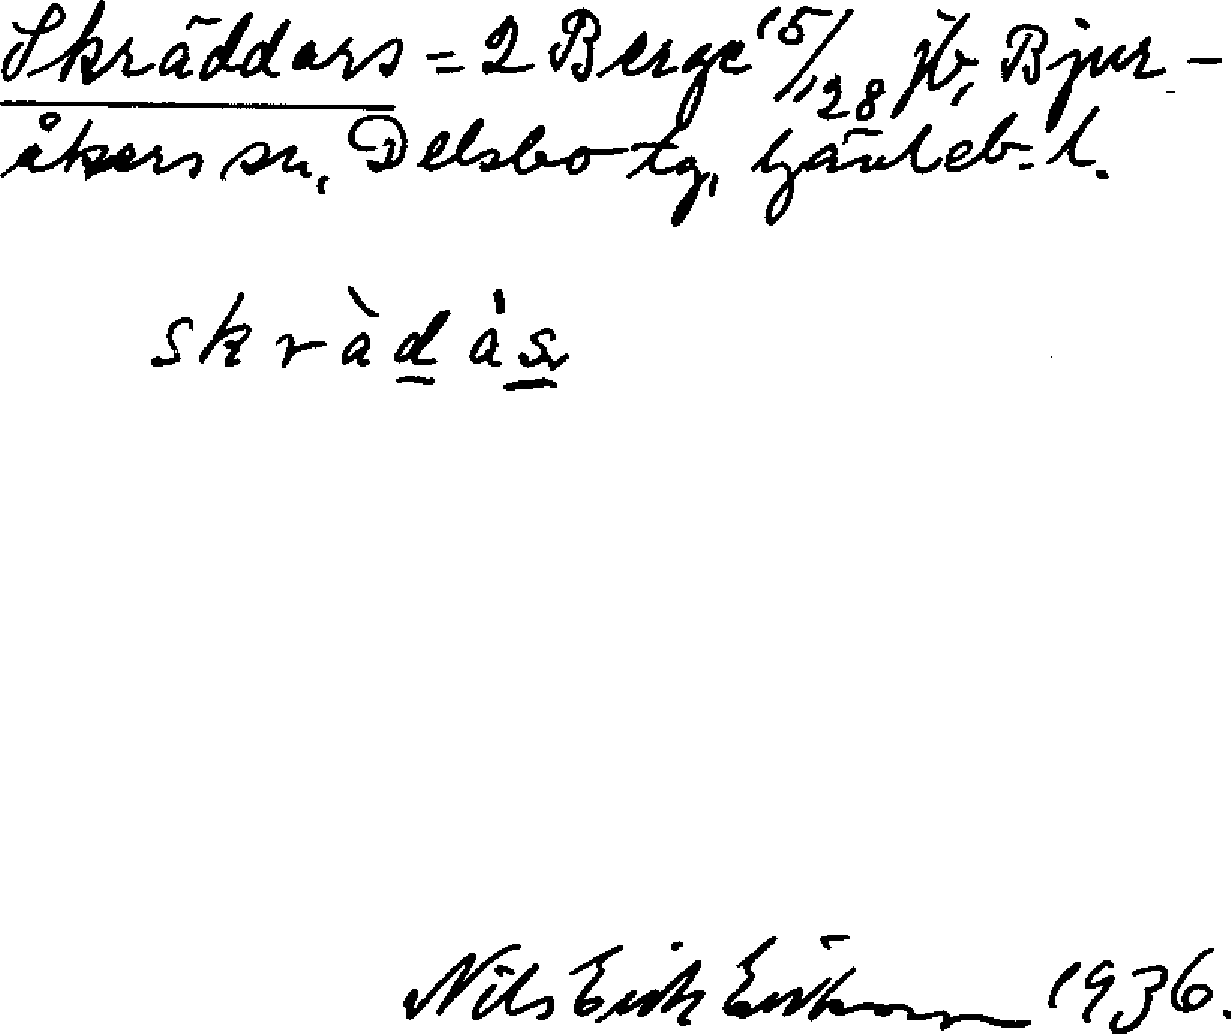 Skräddars = 2 Berge 15/128 jb, Bjur-
åkers sn, Delsbo tg, Gävleb. l.
skràdás
Nils Erik Erikson 1936.